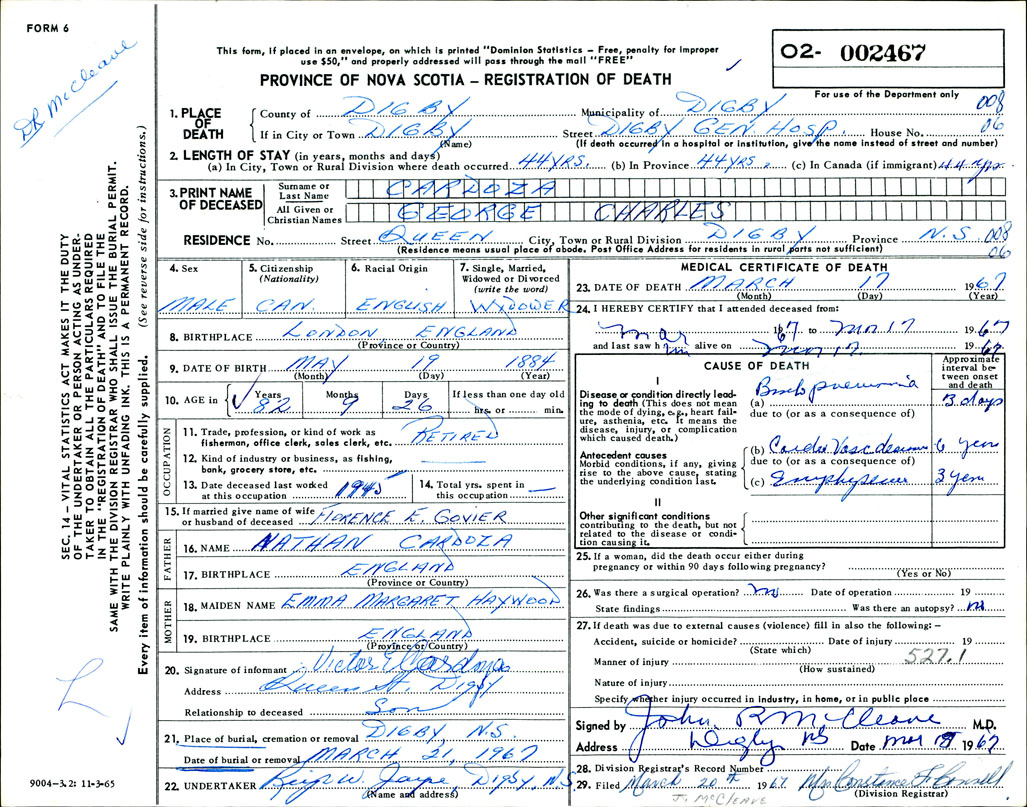 FORM 6
DR McCleave
This form, if placed in an envelope, on which is printed "Dominion Statistics – Free, penalty for improper
use $50," and properly addressed will pass through the mail "FREE"
PROVINCE OF NOVA SCOTIA – REGISTRATION OF DEATH
02- 002467
For use of the Department only
1. PLACE OF DEATH County of DIGBY Municipality of DIGBY 008
If in City or Town DIGBY Street DIGBY GEN. HOSP. House No. 06
(Name) (If death occurred in a hospital or institution, give the name instead of street and number)
2. LENGTH OF STAY (in years, months and days)
(a) In City, Town or Rural Division where death occurred 44 YRS. (b) In Province 44 YRS. (c) In Canada (if immigrant) 44 yrs.
3. PRINT NAME OF DECEASED Surname or Last Name CARDOZA
All Given or Christian Names GEORGE CHARLES
RESIDENCE No. Street QUEEN City, Town or Rural Division DIGBY Province N.S. 008
(Residence means usual place of abode. Post Office Address for residents in rural parts not sufficient) 06
SEC. 14 – VITAL STATISTICS ACT MAKES IT THE DUTY
OF THE UNDERTAKER OR PERSON ACTING AS UNDER-
TAKER TO OBTAIN ALL THE PARTICULARS REQUIRED
IN THE "REGISTRATION OF DEATH" AND TO FILE THE
SAME WITH THE DIVISION REGISTRAR WHO SHALL ISSUE THE BURIAL PERMIT.
WRITE PLAINLY WITH UNFADING INK. THIS IS A PERMANENT RECORD.
Every item of information should be carefully supplied. (See reverse side for instructions.)
4. Sex 5. Citizenship (Nationality) 6. Racial Origin 7. Single, Married, Widowed or Divorced (write the word)
MALE CAN. ENGLISH WYDOWER
8. BIRTHPLACE LONDON ENGLAND
(Province or Country)
9. DATE OF BIRTH MAY 19 1884
(Month) (Day) (Year)
10. AGE in Years Months Days If less than one day old
82 9 26 hrs. or min.
OCCUPATION
11. Trade, profession, or kind of work as
fisherman, office clerk, sales clerk, etc. RETIRED
12. Kind of industry or business, as fishing,
bank, grocery store, etc.
13. Date deceased last worked
at this occupation 1945
14. Total yrs. spent in
this occupation
15. If married give name of wife
or husband of deceased FLORENCE E. GOVIER
FATHER
16. NAME NATHAN CARDOZA
17. BIRTHPLACE ENGLAND
(Province or Country)
MOTHER
18. MAIDEN NAME EMMA MARGARET HAYWOOD
19. BIRTHPLACE ENGLAND
(Province or Country)
20. Signature of informant Victor E Cardoza
Address Queen St. Digby
Relationship to deceased Son
21. Place of burial, cremation or removal DIGBY, N.S.
Date of burial or removal MARCH 21, 1967
22. UNDERTAKER W. Jayne, Digby, N.S.
(Name and address)
9004–3.2: 11-3-65
MEDICAL CERTIFICATE OF DEATH
23. DATE OF DEATH MARCH 17 1967
(Month) (Day) (Year)
24. I HEREBY CERTIFY that I attended deceased from:
Mar 1967 to Mar 17 1967
and last saw him alive on Mar 17 1967
CAUSE OF DEATH
Approximate interval between onset and death
I
Disease or condition directly lead-
ing to death (This does not mean
the mode of dying, e.g., heart fail-
ure, asthenia, etc. It means the
disease, injury, or complication
which caused death.)
(a) Bronchopneumonia 3 days
due to (or as a consequence of)
Antecedent causes
Morbid conditions, if any, giving
rise to the above cause, stating
the underlying condition last.
(b) Cardio Vasc disease 6 years
due to (or as a consequence of)
(c) Emphysema 3 years
II
Other significant conditions
contributing to the death, but not
related to the disease or condi-
tion causing it.
25. If a woman, did the death occur either during
pregnancy or within 90 days following pregnancy?
(Yes or No)
26. Was there a surgical operation? no Date of operation 19
State findings Was there an autopsy? no
27. If death was due to external causes (violence) fill in also the following: –
Accident, suicide or homicide? Date of injury 19
(State which)
527.1
Manner of injury
(How sustained)
Nature of injury
Specify whether injury occurred in industry, in home, or in public place
Signed by John R McCleave M.D.
Address Digby NS Date Mar 1967
28. Division Registrar's Record Number
29. Filed March 20th 1967 Constance F Connell
(Division Registrar)
J. McCLEAVE